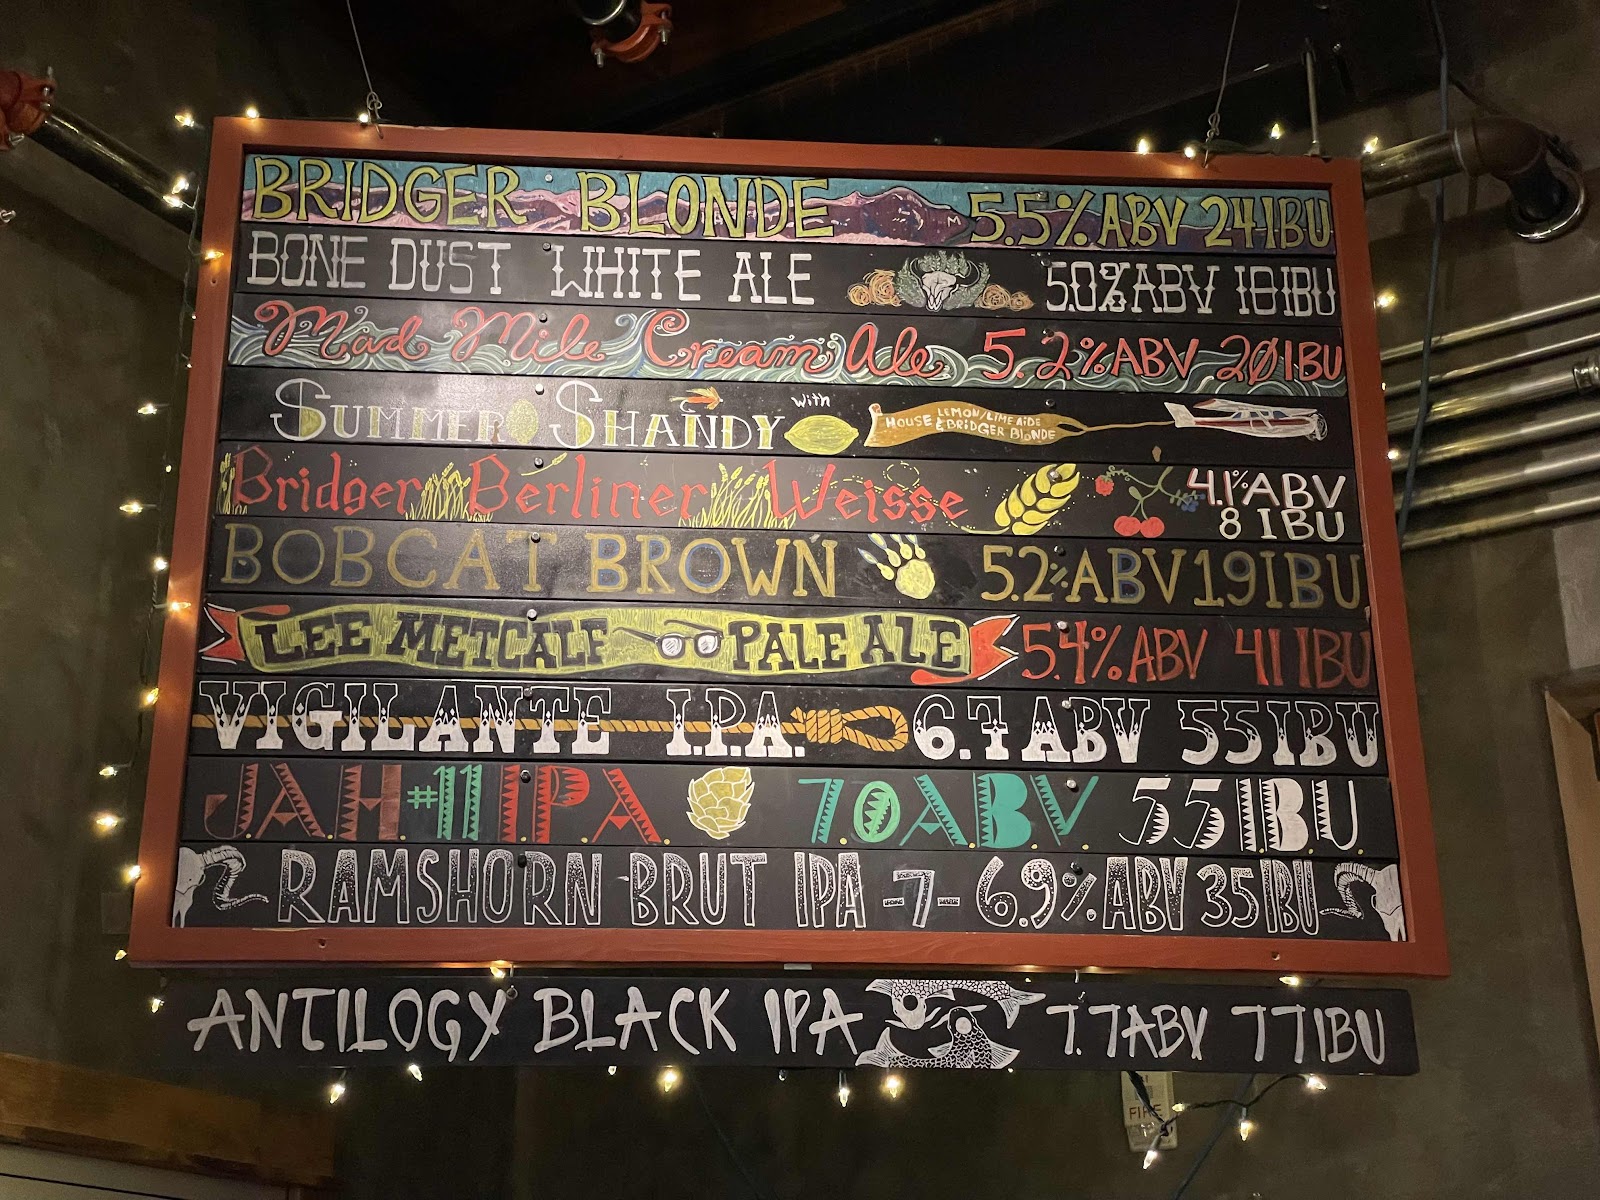 BRIDGER BLONDE 5.5% ABV 24 IBU
BONE DUST WHITE ALE 5.0% ABV 18 IBU
Mad Mile Cream Ale 5.2% ABV 20 IBU
SUMMER SHANDY with HOUSE LEMON/LIME AIDE
& BRIDGER BLONDE
Bridger Berliner Weisse 4.1% ABV
8 IBU
BOBCAT BROWN 5.2% ABV 19 IBU
LEE METCALF PALE ALE 5.4% ABV 41 IBU
VIGILANTE I.P.A. 6.7 ABV 55 IBU
J.A.H. #11 I.P.A. 70 A.B.V. 55 I.B.U.
RAMSHORN BRUT IPA -7- 6.9% ABV 35 IBU
ANTILOGY BLACK IPA 7.7 ABV 77 IBU
FIRE